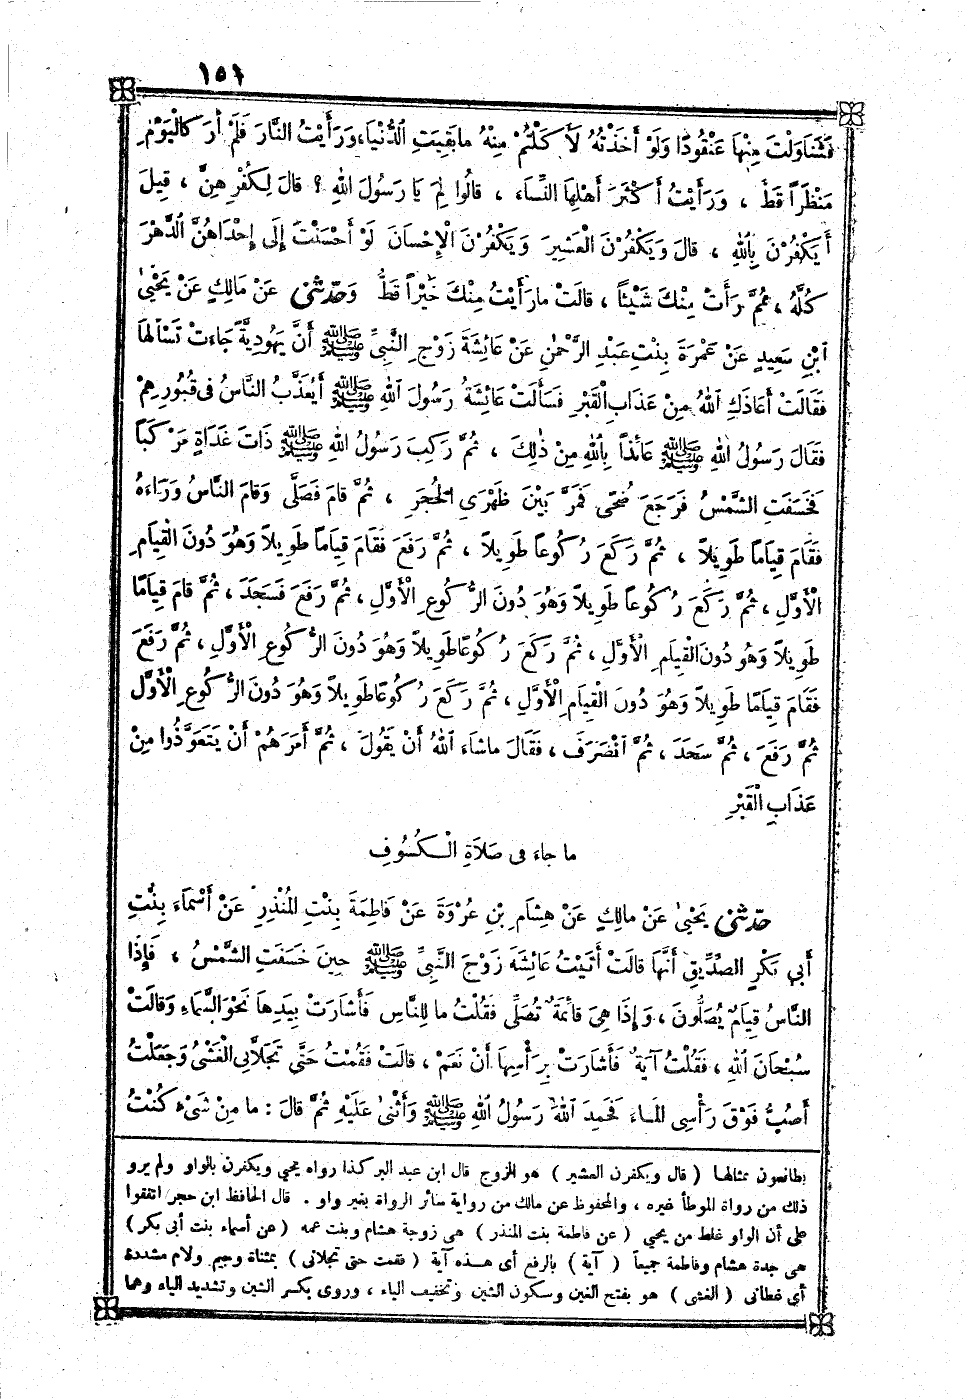 ١٥٦
فَتَنَاوَلْتُ مِنْهَا عُنْقُودًا وَلَوْ أَخَذْتُهُ لَأَكَلْتُمْ مِنْهُ مابَقِيَتِ الدُّنْيَا، وَرَأَيْتُ النَّارَ فَلَمْ أَرَ كَالْيَوْمِ
مَنْظَرًا قَطُّ ، وَرَأَيْتُ أَكْثَرَ أَهْلِهَا النِّسَاءَ ، قالُوا لِمَ يَا رَسُولَ اللهِ ؟ قالَ لِكُفْرِهِنَّ ، قِيلَ
أَيَكْفُرْنَ بِاللهِ ، قالَ وَيَكْفُرْنَ الْعَشِيرَ وَيَكْفُرْنَ الْإِحْسَانَ لَوْ أَحْسَنْتَ إِلَى إِحْدَاهُنَّ الدَّهْرَ
كُلَّهُ ، ثُمَّ رَأَتْ مِنْكَ شَيْئًا ، قالَتْ مارَأَيْتُ مِنْكَ خَيْرًا قَطُّ وَحَدَّثَنِي عَنْ مَالِكٍ عَنْ يَحْيَىٰ
ابْنِ سَعِيدٍ عَنْ عَمْرَةَ بِنْتِ عَبْدِ الرَّحْمٰنِ عَنْ عَائِشَةَ زَوْجِ النَّبِيِّ ﷺ أَنَّ يَهُودِيَّةً جَاءَتْ تَسْأَلُهَا
فَقَالَتْ أَعَاذَكِ اللهُ مِنْ عَذَابِ الْقَبْرِ فَسَأَلَتْ عَائِشَةُ رَسُولَ اللهِ ﷺ أَيُعَذَّبُ النَّاسُ فى قُبُورِهِمْ
فَقَالَ رَسُولُ اللهِ ﷺ عَائِذًا بِاللهِ مِنْ ذٰلِكَ ، ثُمَّ رَكِبَ رَسُولُ اللهِ ﷺ ذَاتَ غَدَاةٍ مَرْكَبًا
فَخَسَفَتِ الشَّمْسُ فَرَجَعَ ضُحًى فَمَرَّ بَيْنَ ظَهْرَىِ الْحُجَرِ ، ثُمَّ قامَ فَصَلَّى وَقامَ النَّاسُ وَرَاءَهُ
فَقَامَ قِيَامًا طَوِيلاً ، ثُمَّ رَكَعَ رُكُوعاً طَوِيلاً ، ثُمَّ رَفَعَ فَقَامَ قِيَاماً طَوِيلاً وَهُوَ دُونَ الْقِيَامِ
الْأَوَّلِ ، ثُمَّ رَكَعَ رُكُوعاً طَوِيلاً وَهُوَ دُونَ الرُّكُوعِ الْأَوَّلِ ، ثُمَّ رَفَعَ فَسَجَدَ ، ثُمَّ قامَ قِيَامًا
طَوِيلاً وَهُوَ دُونَ الْقِيَامِ الْأَوَّلِ ، ثُمَّ رَكَعَ رُكُوعًا طَوِيلاً وَهُوَ دُونَ الرُّكُوعِ الْأَوَّلِ ، ثُمَّ رَفَعَ
فَقَامَ قِيَامًا طَوِيلاً وَهُوَ دُونَ الْقِيَامِ الْأَوَّلِ ، ثُمَّ رَكَعَ رُكُوعًا طَوِيلاً وَهُوَ دُونَ الرُّكُوعِ الْأَوَّلِ
ثُمَّ رَفَعَ ، ثُمَّ سَجَدَ ، ثُمَّ انْصَرَفَ ، فَقَالَ ماشَاءَ اللهُ أَنْ يَقُولَ ، ثُمَّ أَمَرَهُمْ أَنْ يَتَعَوَّذُوا مِنْ
عَذَابِ الْقَبْرِ
ما جاءَ فى صَلَاةِ الْكُسُوفِ
حَدَّثَنِي يَحْيَىٰ عَنْ مالِكٍ عَنْ هِشَامِ بْنِ عُرْوَةَ عَنْ فَاطِمَةَ بِنْتِ الْمُنْذِرِ عَنْ أَسْمَاءَ بِنْتِ
أَبِي بَكْرٍ الصِّدِّيقِ أَنَّهَا قالَتْ أَتَيْتُ عَائِشَةَ زَوْجَ النَّبِيِّ ﷺ حِينَ خَسَفَتِ الشَّمْسُ ، فَإِذَا
النَّاسُ قِيَامٌ يُصَلُّونَ ، وَإِذَا هِيَ قائِمَةٌ تُصَلِّى فَقُلْتُ ما لِلنَّاسِ فَأَشَارَتْ بِيَدِهَا نَحْوَ السَّمَاءِ وَقالَتْ
سُبْحَانَ اللهِ ، فَقُلْتُ آيَةٌ فَأَشَارَتْ بِرَأْسِهَا أَنْ نَعَمْ ، قالَتْ فَقُمْتُ حَتَّى تَجَلَّانِى الْغَشْىُ وَجَعَلْتُ
أَصُبُّ فَوْقَ رَأْسِى الْمَاءَ فَحَمِدَ اللهَ رَسُولُ اللهِ ﷺ وَأَثْنَىٰ عَلَيْهِ ثُمَّ قالَ : ما مِنْ شَىْءٍ كُنْتُ
بطائعون مثالها ( قال ويكفرن العشير ) هو الزوج قال ابن عبد البر كذا رواه يحيى ويكفرن بالواو ولم يرو
ذلك من رواة الموطأ غيره ، والمحفوظ عن مالك من رواية سائر الرواة بغير واو . قال الحافظ ابن حجر اتفقوا
على أن الواو غلط من يحيى ( عن فاطمة بنت المنذر ) هى زوجة هشام وبنت عمه ( عن أسماء بنت أبى بكر )
هى جدة هشام وفاطمة جميعاً ( آية ) بالرفع أى هذه آية ( فقمت حتى تجلانى ) بمثناة وجيم ولام مشددة
أى غطانى ( الغشى ) هو بفتح الغين وسكون الشين وتخفيف الياء ، وروى بكسر الشين وتشديد الياء وهما